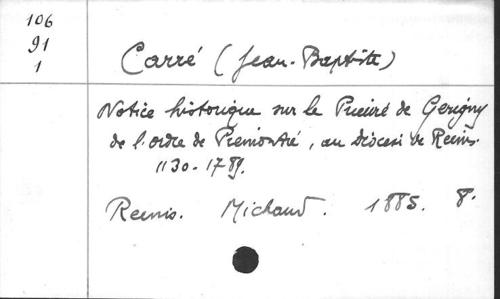 106
91
1
Carré (Jean-Baptiste)
Notice historique sur le Prieuré de Gerigny
de l'ordre de Prémontré, au diocèse de Reims.
1130-1789.
Reims. Michaud. 1885. 8.